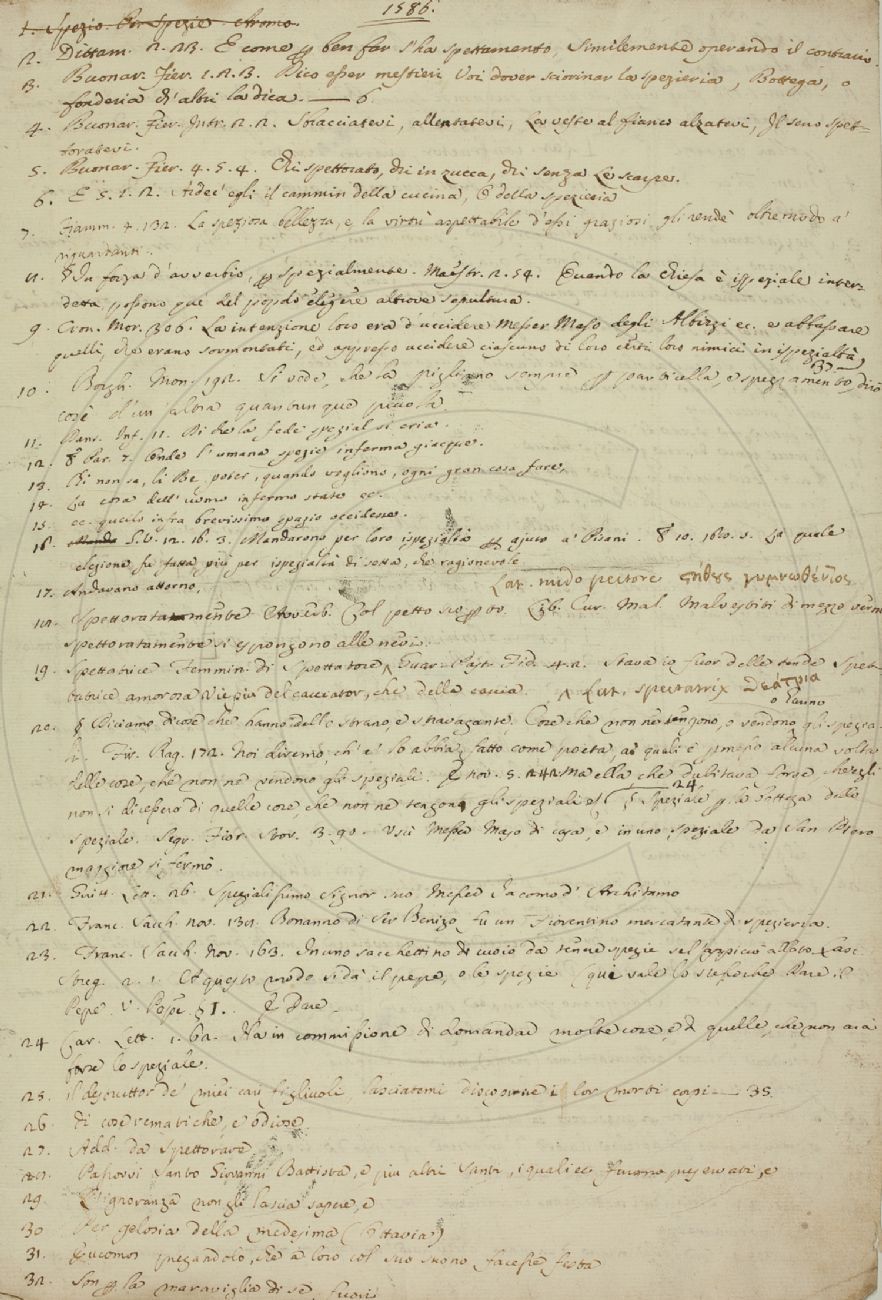 1586.
1. Spezio. Per Spezie. Aromo.
2. Dittam. 2. 23. E come p ben far s'ha spettamento, Similemente operando il contrario.
3. Buonar. Fier. 1. 2. 3. Dico esser mestieri Voi dover sciorinar la spezieria, Bottega, o
fonderia ch'altri la dica. — 6.
4. Buonar. Fier. Intr. 2. 2. Sbracciatevi, allentatevi, La veste al fianco alzatevi, Il seno spet-
toratevi.
5. Buonar. Fier. 4. 5. 4. Chi spettorato, chi in zucca, chi senza Le scarpe.
6. E 5. 1. 2. Ardec' egli il cammin della cucina, O della spezieria
7. Fiamm. 4. 132. La speziosa bellezza, e la virtù aspettabile d'essi graziosi gli rende oltremodo a'
riguardanti.
8. § In forza d'avverbio, p spezialmente. Maestr. 2. 54. Quando la Chiesa è ispeziale inter-
detta, possono que' del popolo eleggere altrove sepultura.
9. Cron. Mor. 306. La intenzione loro era d'uccidere Messer Maso degli Albizzi ec. e abbassare
quelli, che erano sormontati, ed appresso uccidere ciascuno di loro certi loro nimici in ispezialtà,
37—
10. Borgh. Mon. 192. Si vede, che la pigliano sempre p particella, e spezzamento, dirò
così d'un'altra quantunque piccola
11. Dans. Inf. 11. Di che la fede spezial si cria.
12. § Par. 7. Onde l'umana spezie inferma giacque.
13. Chi non sa, li Re poter, quando vogliono, ogni gran cosa fare,
14. La cosa dell'uomo infermo stato ec.
15. ec. quello infra brevissimo spazio occidesse.
16. G. V. 12. 16. 3. Mandarono per loro ispezialtà p ajuto a' Pisani. § 10. 160. 5. La quale
elezione fu fatta più per ispezialtà di setta, che ragionevole
17. Andavano attorno,
Lat. nudo pectore
18. Spettoratamente Avverb. Col petto scoperto. Lib. Cur. Mal. Malvestiti di mezzo verno
spettoratamente si espongono alle nevi.
19. Spettatrice Femmin. di Spettatore, Guar. Past. Fid. 4. 2. Stava io fuor delle tende Spet-
tatrice amorosa Vie più del cacciator, che della caccia. Lat. spectatrix
o hanno
20. § Diciamo di cose che hanno dello strano, e stravagante, Cose che non ne tengono, o vendono gli spezia-
li. Fir. Rag. 172. Noi diremo, ch'e' lo abbia fatto come poeta, a' quali è permesso alcuna volta
delle cose, che non ne vendono gli speziali. E nov. 5. 242 Ma ella che dubitava forse ch'egli
24
non si dicessero di quelle cose, che non ne tengono gli speziali § Speziale p la bottega dello
speziale. Segr. Fior. Stor. 3. 90. Uscì Messer Maso di casa, e in uno speziale da San Piero
maggiore si fermò.
21. Guitt. Lett. 26. Spezialissimo Signor suo Messer Jacomo d'Architano
22. Franc. Sacch. nov. 138. Bonanno di Ser Benizo fu un Fiorentino mercatante di spezieria.
23. Franc. Sacch. Nov. 163. In uno sacchettino di cuoio da tenere spezie sel'appiccò allato. Lasc.
Streg. 2. 1. A questo modo si dà il pepe, o le spezie (qui vale lo stesso che Dare il
Pepe V. Pepe § I. E Dare
24 Car. Lett. 1. 62. Ha in commissione di domandar molte cose, e di quelle, che non arà
forse lo speziale.
25. Il desiuttor de' miei cari figliuoli, lasciatemi discoprire i lor morti corpi — 35.
26. di cose rematiche, e odiose
27. Add. da Spettorare
28. Passovvi Santo Giovanni Battista, e più altri Santi, i quali ec. furono preservati, e
29. L'ignoranza non gli lascia sapere, e
30 Per gelosia della medesima (Ottavia)
31. pregandolo, che a loro col suo suono facesse festa
32. Son p la maraviglia di sè, fuori